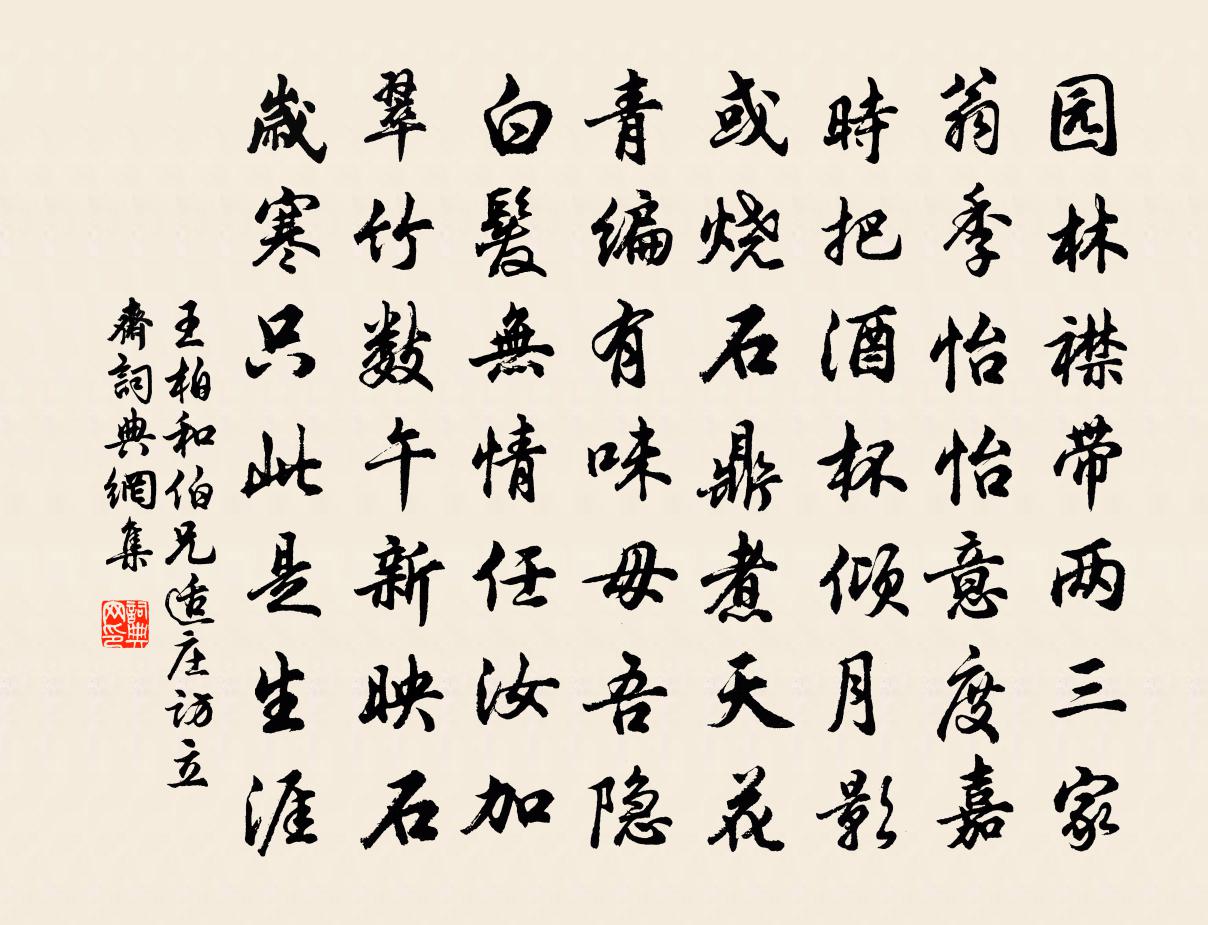 园林襟带两三家
翁季怡怡意度嘉
時把酒杯倾月影
或烧石鼎煮天花
青编有味毋吾隐
白髮無情任汝加
翠竹数竿新映石
歳寒只此是生涯
王柏和伯兄适庄访立
齋詞典網集
詞典网印